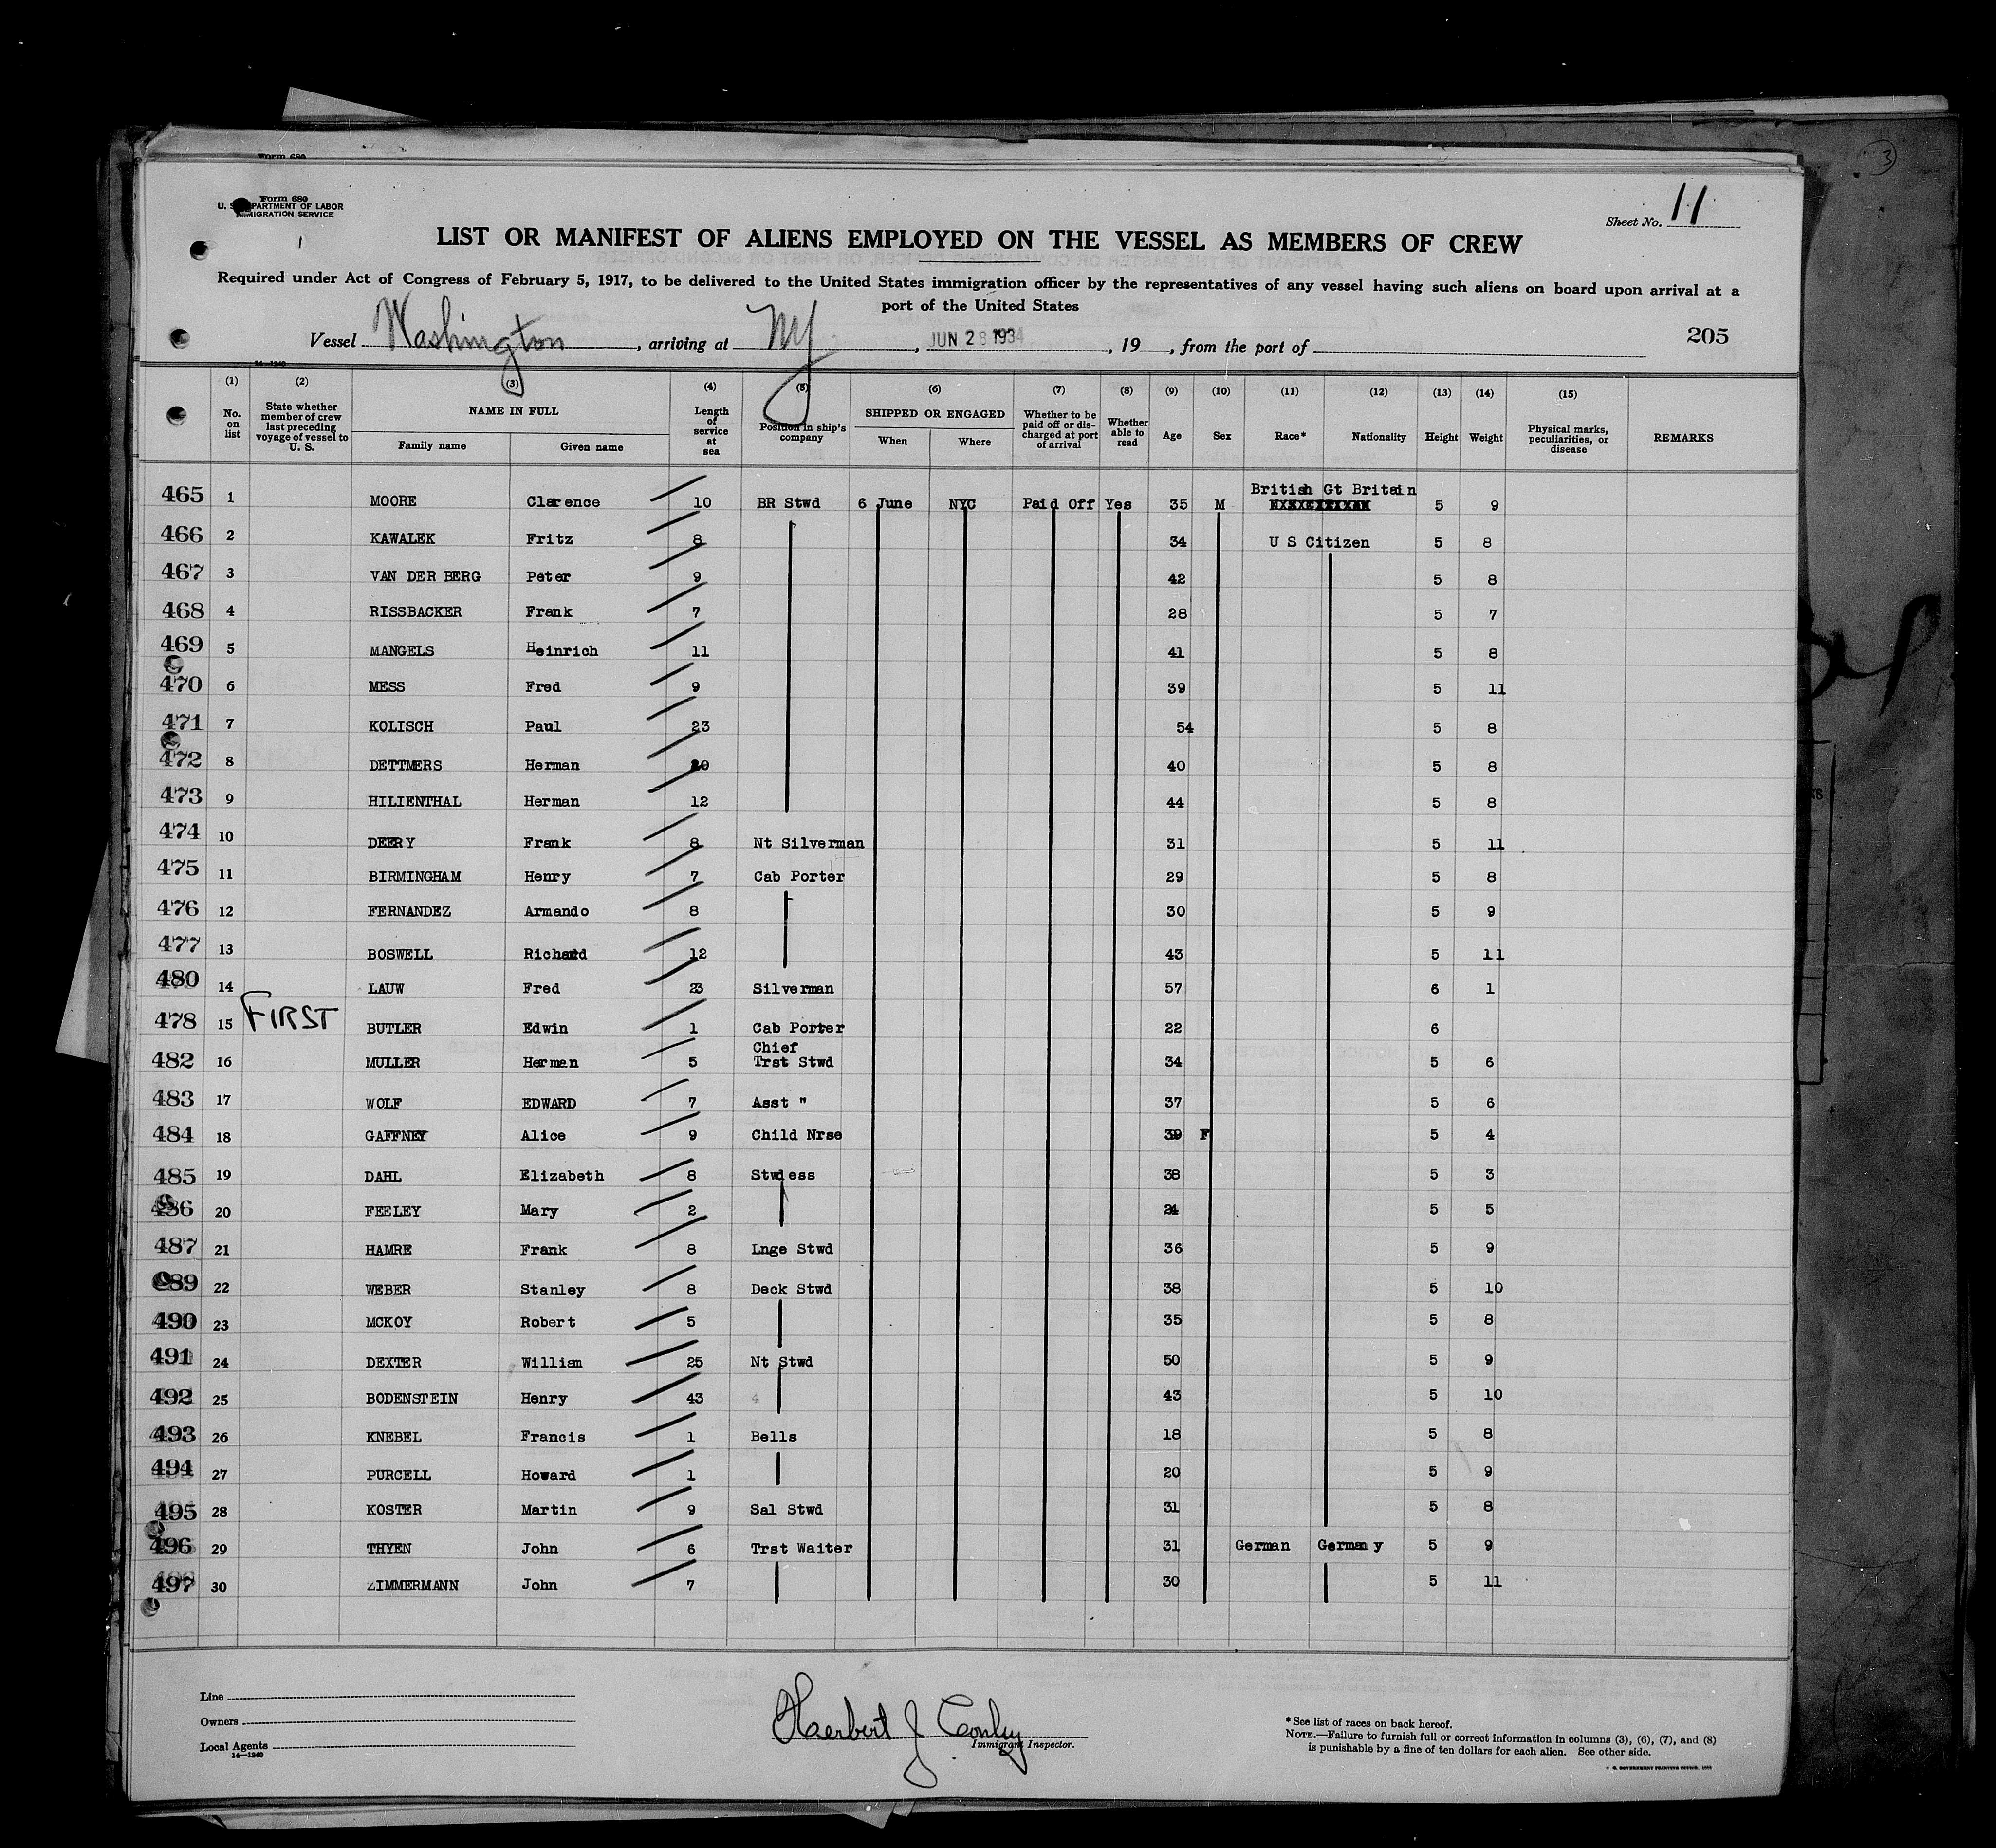 Form 680
Form 680
U. S. DEPARTMENT OF LABOR
IMMIGRATION SERVICE
1
3
Sheet No. 11
LIST OR MANIFEST OF ALIENS EMPLOYED ON THE VESSEL AS MEMBERS OF CREW
Required under Act of Congress of February 5, 1917, to be delivered to the United States immigration officer by the representatives of any vessel having such aliens on board upon arrival at a
port of the United States
Vessel Washington, arriving at NY, JUN 28 1934, 19, from the port of
205
14—1240
(1) (2) (3) (4) (5) (6) (7) (8) (9) (10) (11) (12) (13) (14) (15)
No. on list State whether member of crew last preceding voyage of vessel to U. S. NAME IN FULL Family name Given name Length of service at sea Position in ship's company SHIPPED OR ENGAGED When Where Whether to be paid off or discharged at port of arrival Whether able to read Age Sex Race* Nationality Height Weight Physical marks, peculiarities, or disease REMARKS
465 1 MOORE Clarence 10 BR Stwd 6 June NYC Paid Off Yes 35 M British Gt Britain 5 9
466 2 KAWALEK Fritz 8 34 U S Citizen 5 8
467 3 VAN DER BERG Peter 9 42 5 8
468 4 RISSBACKER Frank 7 28 5 7
469 5 MANGELS Heinrich 11 41 5 8
470 6 MESS Fred 9 39 5 11
471 7 KOLISCH Paul 23 54 5 8
472 8 DETTMERS Herman 20 40 5 8
473 9 HILIENTHAL Herman 12 44 5 8
474 10 DEERY Frank 8 Nt Silverman 31 5 11
475 11 BIRMINGHAM Henry 7 Cab Porter 29 5 8
476 12 FERNANDEZ Armando 8 30 5 9
477 13 BOSWELL Richard 12 43 5 11
480 14 LAUW Fred 23 Silverman 57 6 1
478 15 FIRST BUTLER Edwin 1 Cab Porter 22 6
482 16 MULLER Herman 5 Chief Trst Stwd 34 5 6
483 17 WOLF EDWARD 7 Asst " 37 5 6
484 18 GAFFNEY Alice 9 Child Nrse 39 F 5 4
485 19 DAHL Elizabeth 8 Stwdess 38 5 3
486 20 FEELEY Mary 2 24 5 5
487 21 HAMRE Frank 8 Lnge Stwd 36 5 9
489 22 WEBER Stanley 8 Deck Stwd 38 5 10
490 23 MCKOY Robert 5 35 5 8
491 24 DEXTER William 25 Nt Stwd 50 5 9
492 25 BODENSTEIN Henry 43 4 43 5 10
493 26 KNEBEL Francis 1 Bells 18 5 8
494 27 PURCELL Howard 1 20 5 9
495 28 KOSTER Martin 9 Sal Stwd 31 5 8
496 29 THYEN John 6 Trst Waiter 31 German Germany 5 9
497 30 ZIMMERMANN John 7 30 5 11
Line
Owners
Local Agents
14—1240
Herbert J Conley
Immigrant Inspector.
*See list of races on back hereof.
NOTE.—Failure to furnish full or correct information in columns (3), (6), (7), and (8)
is punishable by a fine of ten dollars for each alien. See other side.
U. S. GOVERNMENT PRINTING OFFICE